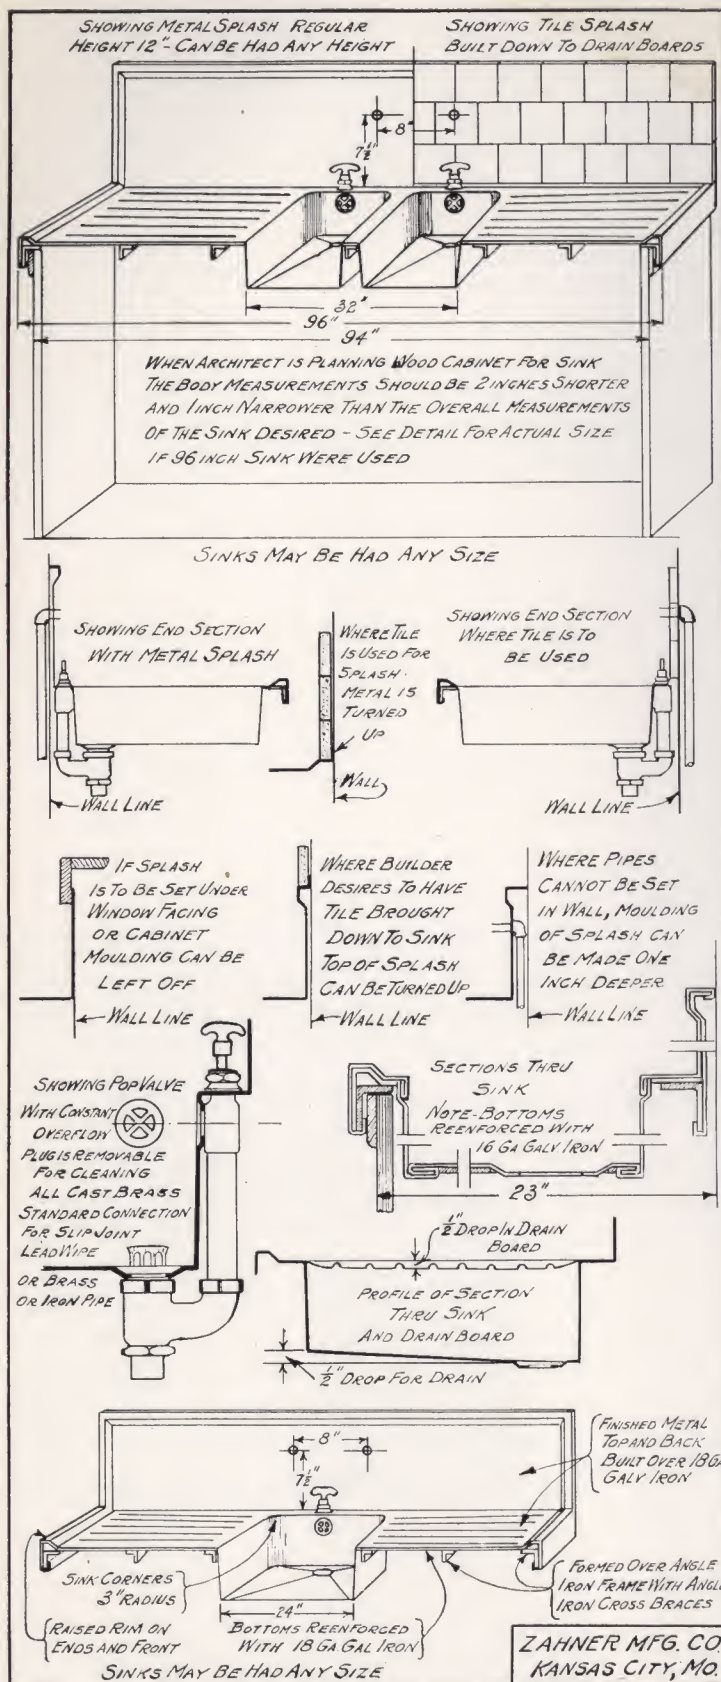 SHOWING METAL SPLASH REGULAR
HEIGHT 12" - CAN BE HAD ANY HEIGHT
SHOWING TILE SPLASH
BUILT DOWN TO DRAIN BOARDS
8"
7½"
32"
96"
94"
WHEN ARCHITECT IS PLANNING WOOD CABINET FOR SINK
THE BODY MEASUREMENTS SHOULD BE 2 INCHES SHORTER
AND 1 INCH NARROWER THAN THE OVERALL MEASUREMENTS
OF THE SINK DESIRED - SEE DETAIL FOR ACTUAL SIZE
IF 96 INCH SINK WERE USED
SINKS MAY BE HAD ANY SIZE
SHOWING END SECTION
WITH METAL SPLASH
WALL LINE
WHERE TILE
IS USED FOR
SPLASH
METAL IS
TURNED
UP
WALL
SHOWING END SECTION
WHERE TILE IS TO
BE USED
WALL LINE
IF SPLASH
IS TO BE SET UNDER
WINDOW FACING
OR CABINET
MOULDING CAN BE
LEFT OFF
WALL LINE
WHERE BUILDER
DESIRES TO HAVE
TILE BROUGHT
DOWN TO SINK
TOP OF SPLASH
CAN BE TURNED UP
WALL LINE
WHERE PIPES
CANNOT BE SET
IN WALL, MOULDING
OF SPLASH CAN
BE MADE ONE
INCH DEEPER
WALL LINE
SHOWING POP VALVE
WITH CONSTANT
OVERFLOW
PLUG IS REMOVABLE
FOR CLEANING
ALL CAST BRASS
STANDARD CONNECTION
FOR SLIP JOINT
LEAD WIPE
OR BRASS
OR IRON PIPE
SECTIONS THRU
SINK
NOTE-BOTTOMS
REENFORCED WITH
16 GA GALV IRON
23"
½" DROP IN DRAIN
BOARD
PROFILE OF SECTION
THRU SINK
AND DRAIN BOARD
½" DROP FOR DRAIN
8"
7½"
FINISHED METAL
TOP AND BACK
BUILT OVER 18 GA
GALV IRON
SINK CORNERS
3" RADIUS
24"
FORMED OVER ANGLE
IRON FRAME WITH ANGLE
IRON CROSS BRACES
RAISED RIM ON
ENDS AND FRONT
BOTTOMS REENFORCED
WITH 18 GA. GAL IRON
SINKS MAY BE HAD ANY SIZE
ZAHNER MFG. CO.
KANSAS CITY, MO.